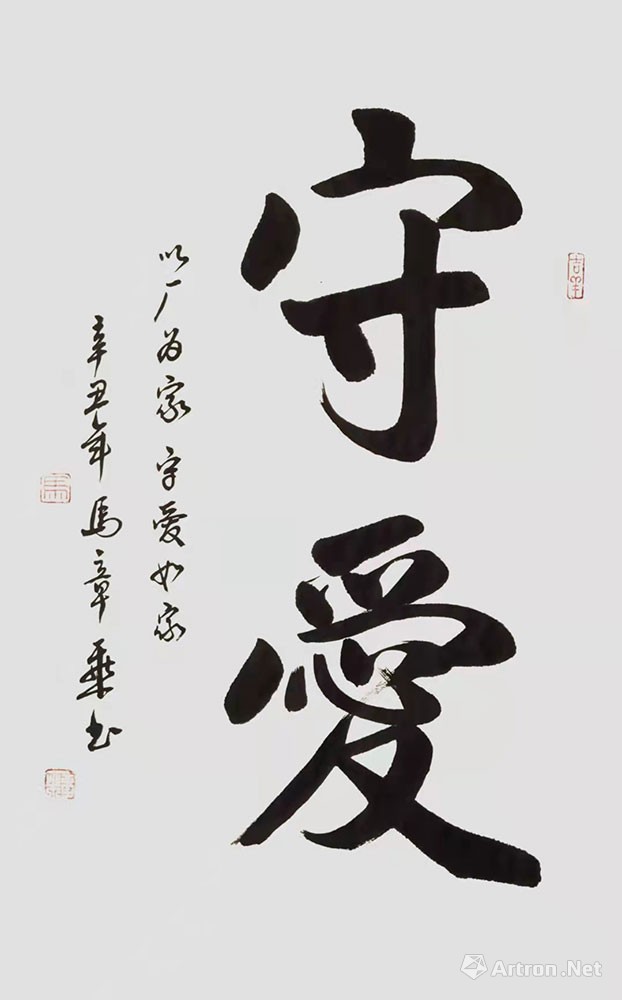 守愛
以厂为家 守愛如家
辛丑年 馬章乘书
Artron.Net